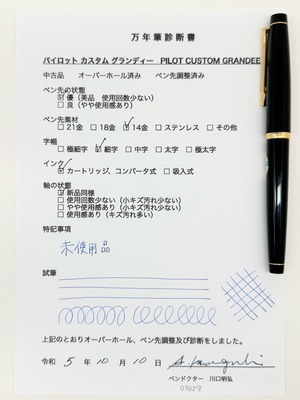 万年筆診断書
パイロット カスタム グランディー　PILOT CUSTOM GRANDEE
中古品　オーバーホール済み　ペン先調整済み
ペン先の状態
☑ 優（美品　使用回数少ない）
□ 良（やや使用感あり）
ペン先素材
□ 21金　□ 18金　☑ 14金　□ ステンレス　□ その他
字幅
□ 極細字　☑ 細字　□ 中字　□ 太字　□ 極太字
インク
☑ カートリッジ、コンバータ式　□ 吸入式
軸の状態
☑ 新品同様
□ 使用回数少ない（小キズ汚れ少ない）
□ やや使用感あり（小キズ汚れ少ない）
□ 使用感あり（キズ汚れ多い）
特記事項
未使用品
試筆
上記のとおりオーバーホール、ペン先調整及び診断をしました。
令和 5 年 10 月 10 日
ペンドクター　川口明弘